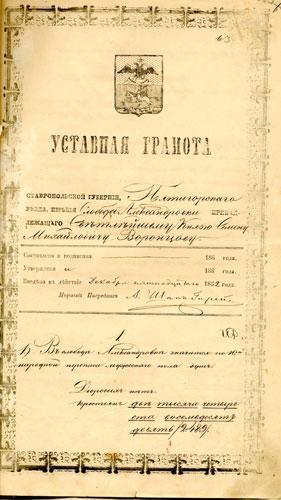 63
УСТАВНАЯ ГРАМОТА
СТАВРОПОЛЬСКОЙ ГУБЕРНІИ, Пятигорскаго
УѢЗДА, ИМѢНІЯ Слободы Александровки ПРИНАД-
ЛЕЖАЩАГО Свѣтлѣйшему Князю Семену
Михайловичу Воронцову
Составлена и подписана 186 года.
Утверждена 186 года.
Введена въ дѣйствіе Декабря 1862 года.
Мировой Посредникъ
1
1) Въ слободѣ Александровкѣ считается по 10й
народной переписи мужескаго пола душъ:
Дворовыхъ пять
крестьянъ двѣ тысячи четыре
ста восемьдесятъ
девять /2489/